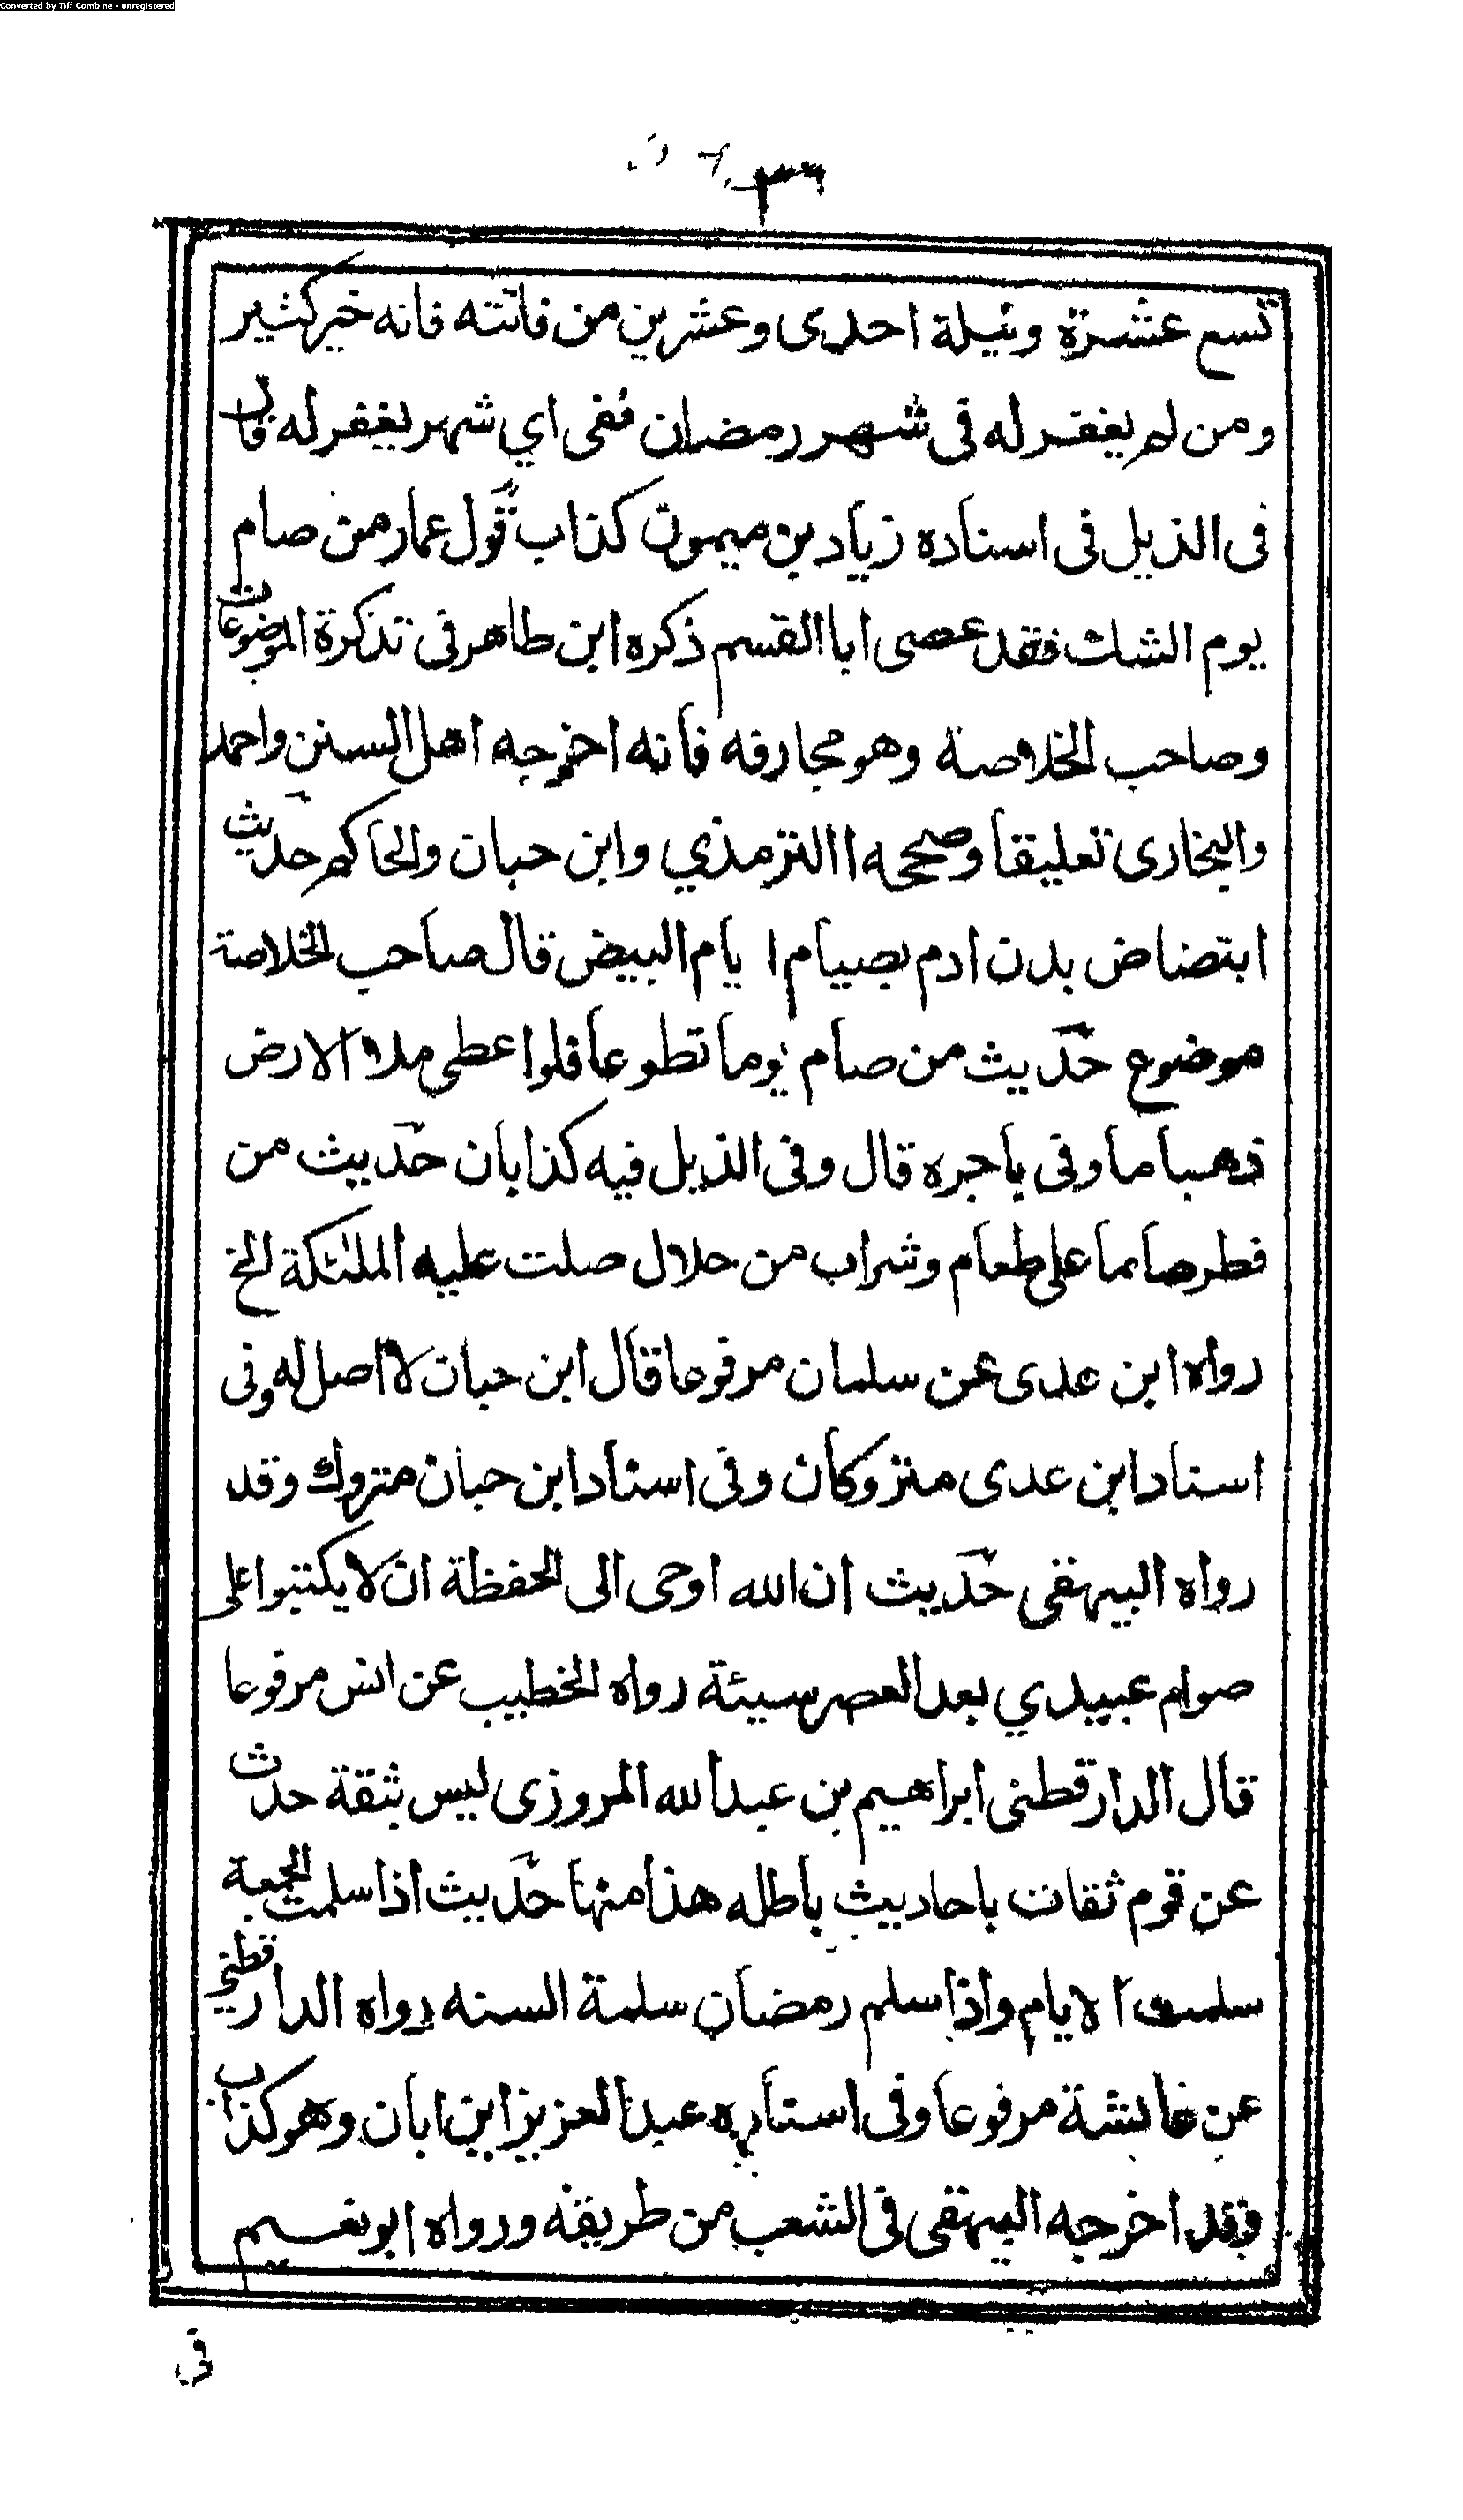 Converted by Tiff Combine - unregistered
٣٦
تسع عشرة وليلة احدى وعشرين من فاتته فاته خير كثير
ومن لم يغفر له فى شهر رمضان ففى اي شهر يغفر له قال
فى الذيل فى اسناده زياد بن ميمون كذاب قول عمار من صام
يوم الشك فقد عصى ابا القسم ذكره ابن طاهر فى تذكرة الموضوعات
وصاحب الخلاصة وهو مجازفه فانه اخرجه اهل السنن واحمد
والبخارى تعليقا وصححه االترمذي وابن حبان والحاكم حديث
ابتضاض بدن ادم بصيام ايام البيض قال صاحب الخلاصة
موضوع حديث من صام يوما تطوعا فلوا عطى ملأ الارض
ذهبا ما وفى باجره قال وفى الذيل فيه كذابان حديث من
فطر صائما على طعام وشراب من حلال صلت عليه الملئكة الخ
رواه ابن عدى عن سلمان مرفوعا قال ابن حبان لا اصل له وفى
اسناد ابن عدى متروكان وفى اسناد ابن حبان متروك وقد
رواه البيهقى حديث ان الله اوحى الى الحفظة ان لا يكتبوا على
صوام عبيدي بعد العصر سيئة رواه الخطيب عن انس مرفوعا
قال الدارقطنى ابراهيم بن عبد الله المروزى ليس بثقة حدث
عن قوم ثقات باحاديث باطله هذا منها حديث اذا سلمت الجمعة
سلمت الايام واذا سلم رمضان سلمة السنه رواه الدارقطني
عن عائشة مرفوعا وفى اسناده عبد العزيز ابن ابان وهو كذاب
وقد اخرجه البيهقى فى الشعب من طريقه ورواه ابو نعيم
فى